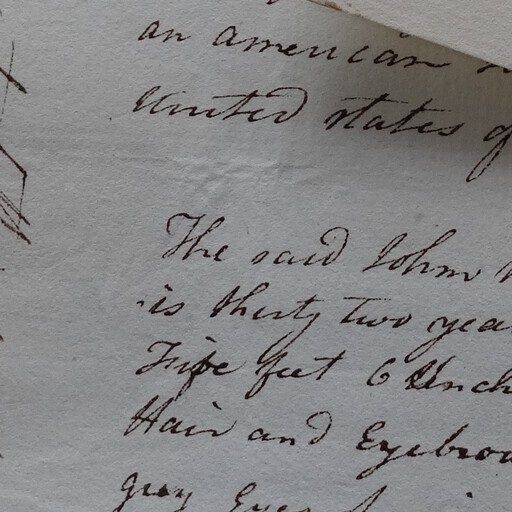 an american
United states of
The said John
is thirty two yea
Five feet 6 Inch
Hair and Eyebrow
gray Eyes